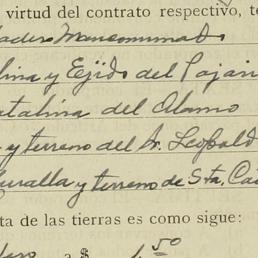 virtud del contrato respectivo, te
adero Mancomunado
lina y Ejido del Pajar
atalina del Alamo
y terreno del Sr. Leopold
uralla y terreno de Sta. Ca
ta de las tierras es como sigue:
a $ 1.50